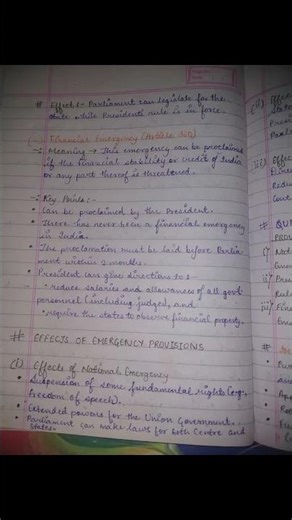 # Effect :- Parliament can legislate for the
state while President's rule is in force.
Financial Emergency (Article 360)
-: Meaning → This emergency can be proclaimed
if the financial stability or credit of India
or any part thereof is threatened.
-: Key Points :-
• Can be proclaimed by the President.
• There has never been a financial emergency
in India.
• The proclamation must be laid before Parlia-
ment within 2 months.
• President can give directions to :-
• reduce salaries and allowances of all govt
personnel (including judges), and
• require the states to observe financial propriety.
# EFFECTS OF EMERGENCY PROVISIONS
(i) Effects of National Emergency
• Suspension of some fundamental rights (eg.
freedom of speech).
• Extended powers for the Union Government.
• Parliament can make laws for both Centre and
States.
(ii) Effec
State
Presi
Parl
iii) Effec
Redu
# QU